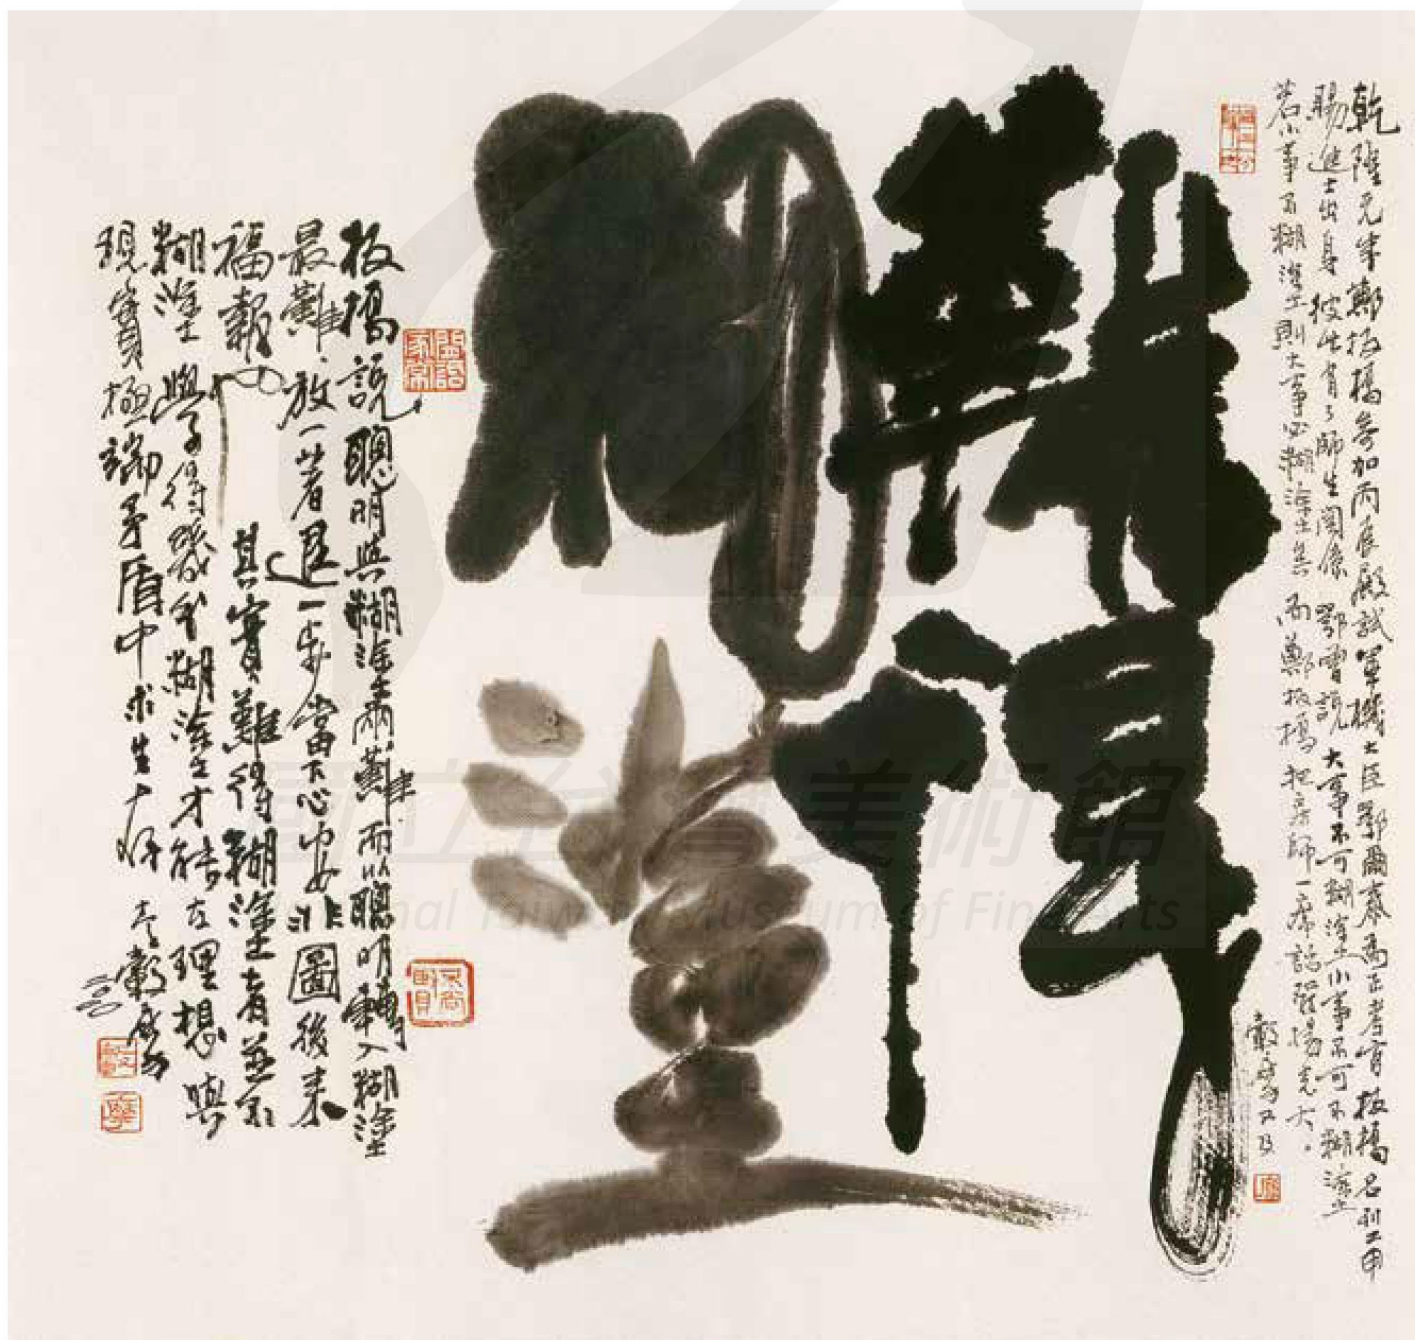 難得
糊塗
乾隆元年鄭板橋參加丙辰殿試軍機大臣鄂爾泰為正考官板橋名列二甲
賜進士出身彼此有了師生關係鄂曾說大事不可糊塗小事不可不糊塗
若小事不糊塗則大事必糊塗矣而鄭板橋把房師一席話發揚光大。
穀
又及
板橋說聰明與糊塗兩難而以聰明轉入糊塗
最難放一著退一步當下心安非圖後來
福報也
其實難得糊塗者並不
糊塗 學了得幾分糊塗才能在理想與
現實極端矛盾中求生
國立台灣美術館
National Taiwan Museum of Fine Arts